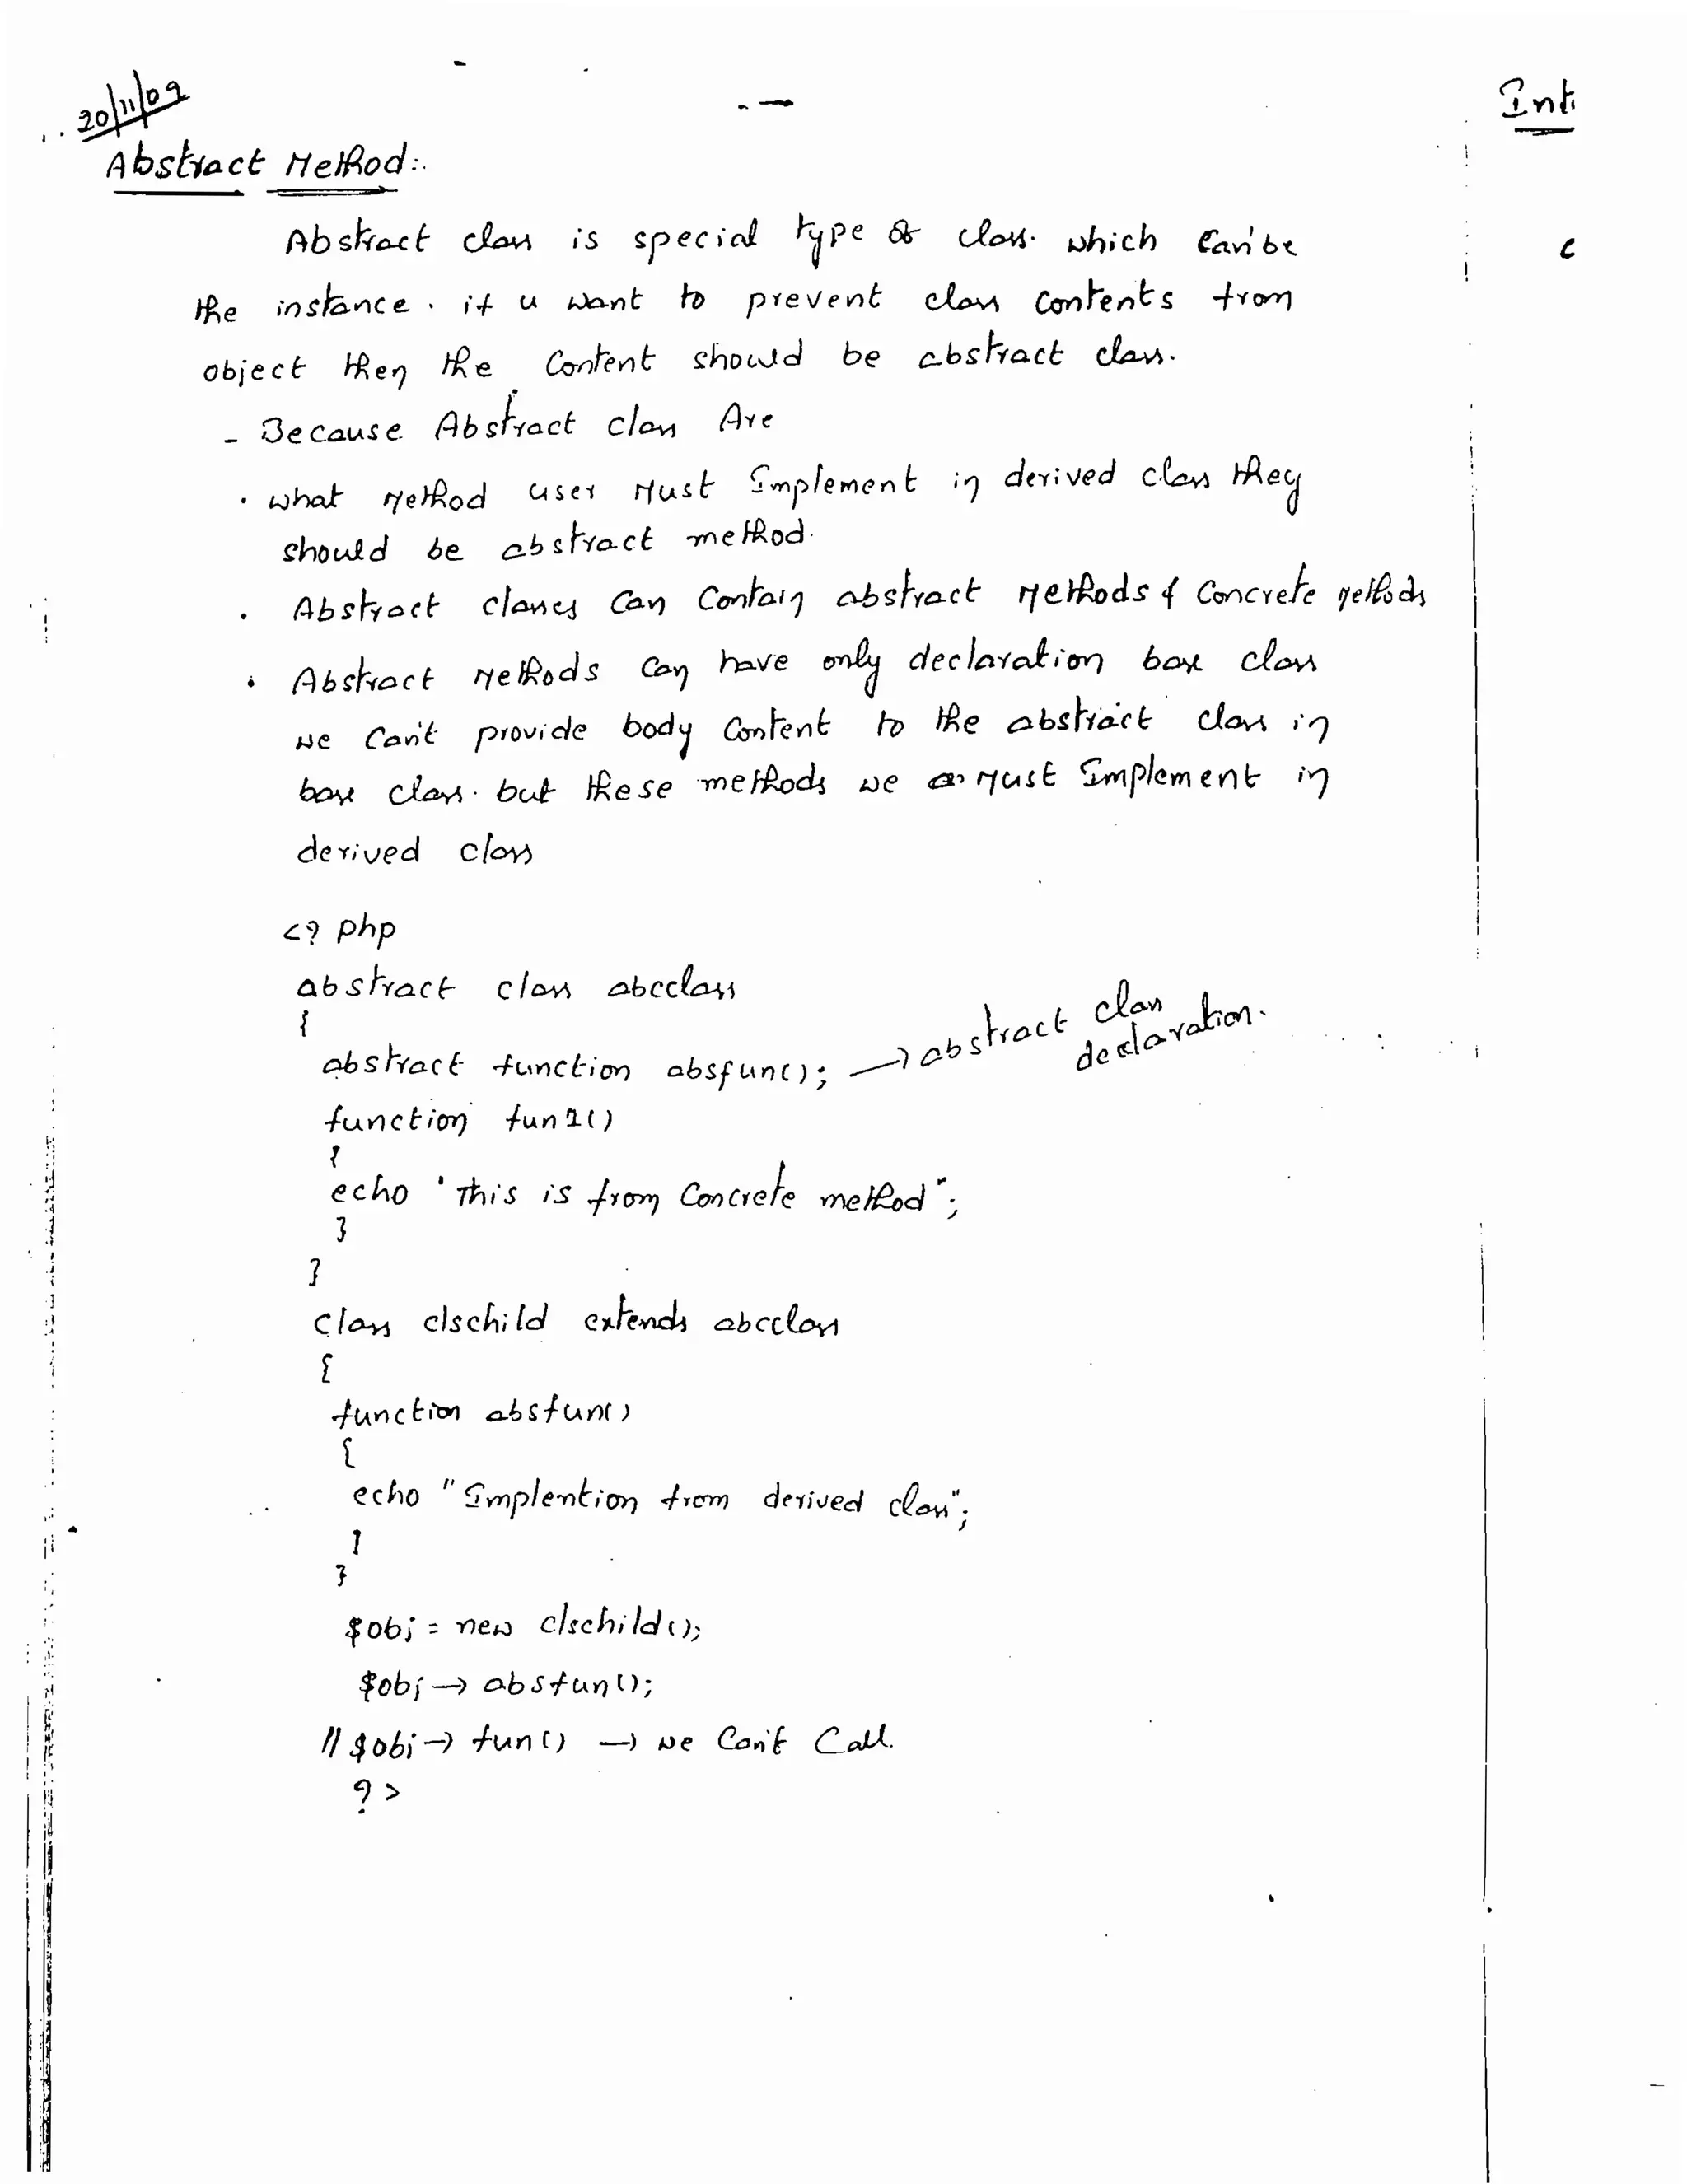 20/11/09
Inti
Abstract Method:.
Abstract class is special type of class. which can't be
c
the instance. if u want to prevent class contents from
object then the content should be abstract class.
- Because Abstract class Are
. what Method user Must Implement in derived class they
should be abstract method.
. Abstract classes can contain abstract Methods & Concrete Methods
. Abstract Methods can have only declaration base class
we can't provide body content to the abstract class in
base class. but these methods we must Implement in
derived class
<? php
abstract class abcclass
{
abstract function absfunc(); → abstract class declaration.
function fun1()
{
echo "This is from concrete method";
}
}
class clschild extends abcclass
{
function absfun()
{
echo "Implention from derived class";
}
}
$obj = new clschild();
$obj → absfun();
// $obj → fun() → we can't call.
?>